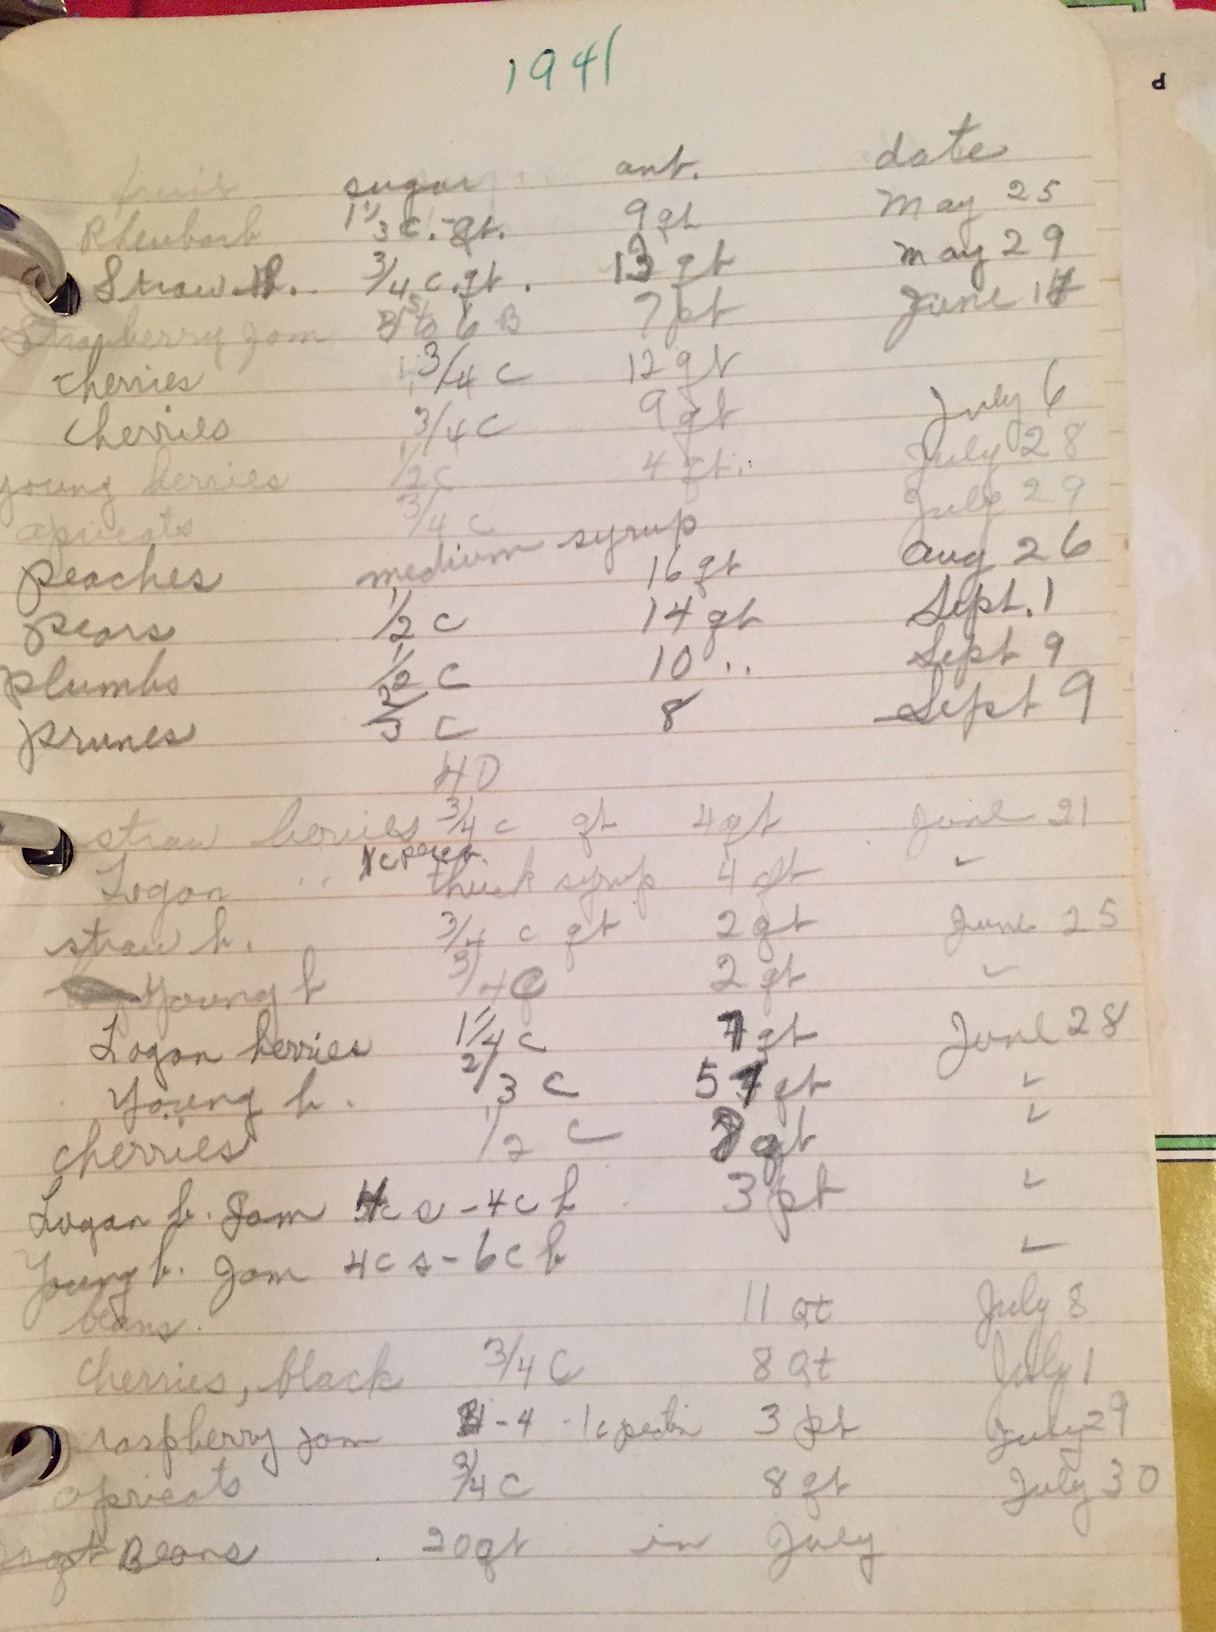 1941
fruit sugar amt. date
Rheubarb 1 1/3 c. - qt. 9 qt May 25
Straw B. 3/4 c. qt. 13 qt May 29
Straberry Jam to 6 B 7 pt June
Cherries 3/4 c 12 qt
Cherries 3/4 c 9 qt July 6
young berries 1/2 c 4 qt. July 28
apricots 3/4 c July 29
peaches medium syrup 16 qt Aug 26
pears 1/2 c 14 qt Sept. 1
plumbs 1/2 c 10 " Sept 9
prunes 2/3 c 8 Sept 9
straw berries 3/4 c qt 4 qt June 21
Logan " thick syrup 4 qt "
straw b. 3/4 c qt 2 qt June 25
Young b 3/4 c 2 qt "
Logan berries 1 1/4 c 7 qt June 28
Young b. 2/3 c 5 qt "
cherries 1/2 c qt "
Logan b. Jam 4 c s - 4 c b 3 pt "
Young b. Jam 4 c s - 6 c b "
beans. 11 Qt July 8
Cherries, black 3/4 C 8 Qt July 1
raspberry jam - 4 - 1 c pectin 3 pt July 29
apricots 3/4 c 8 qt July 30
Beans 20 qt in July